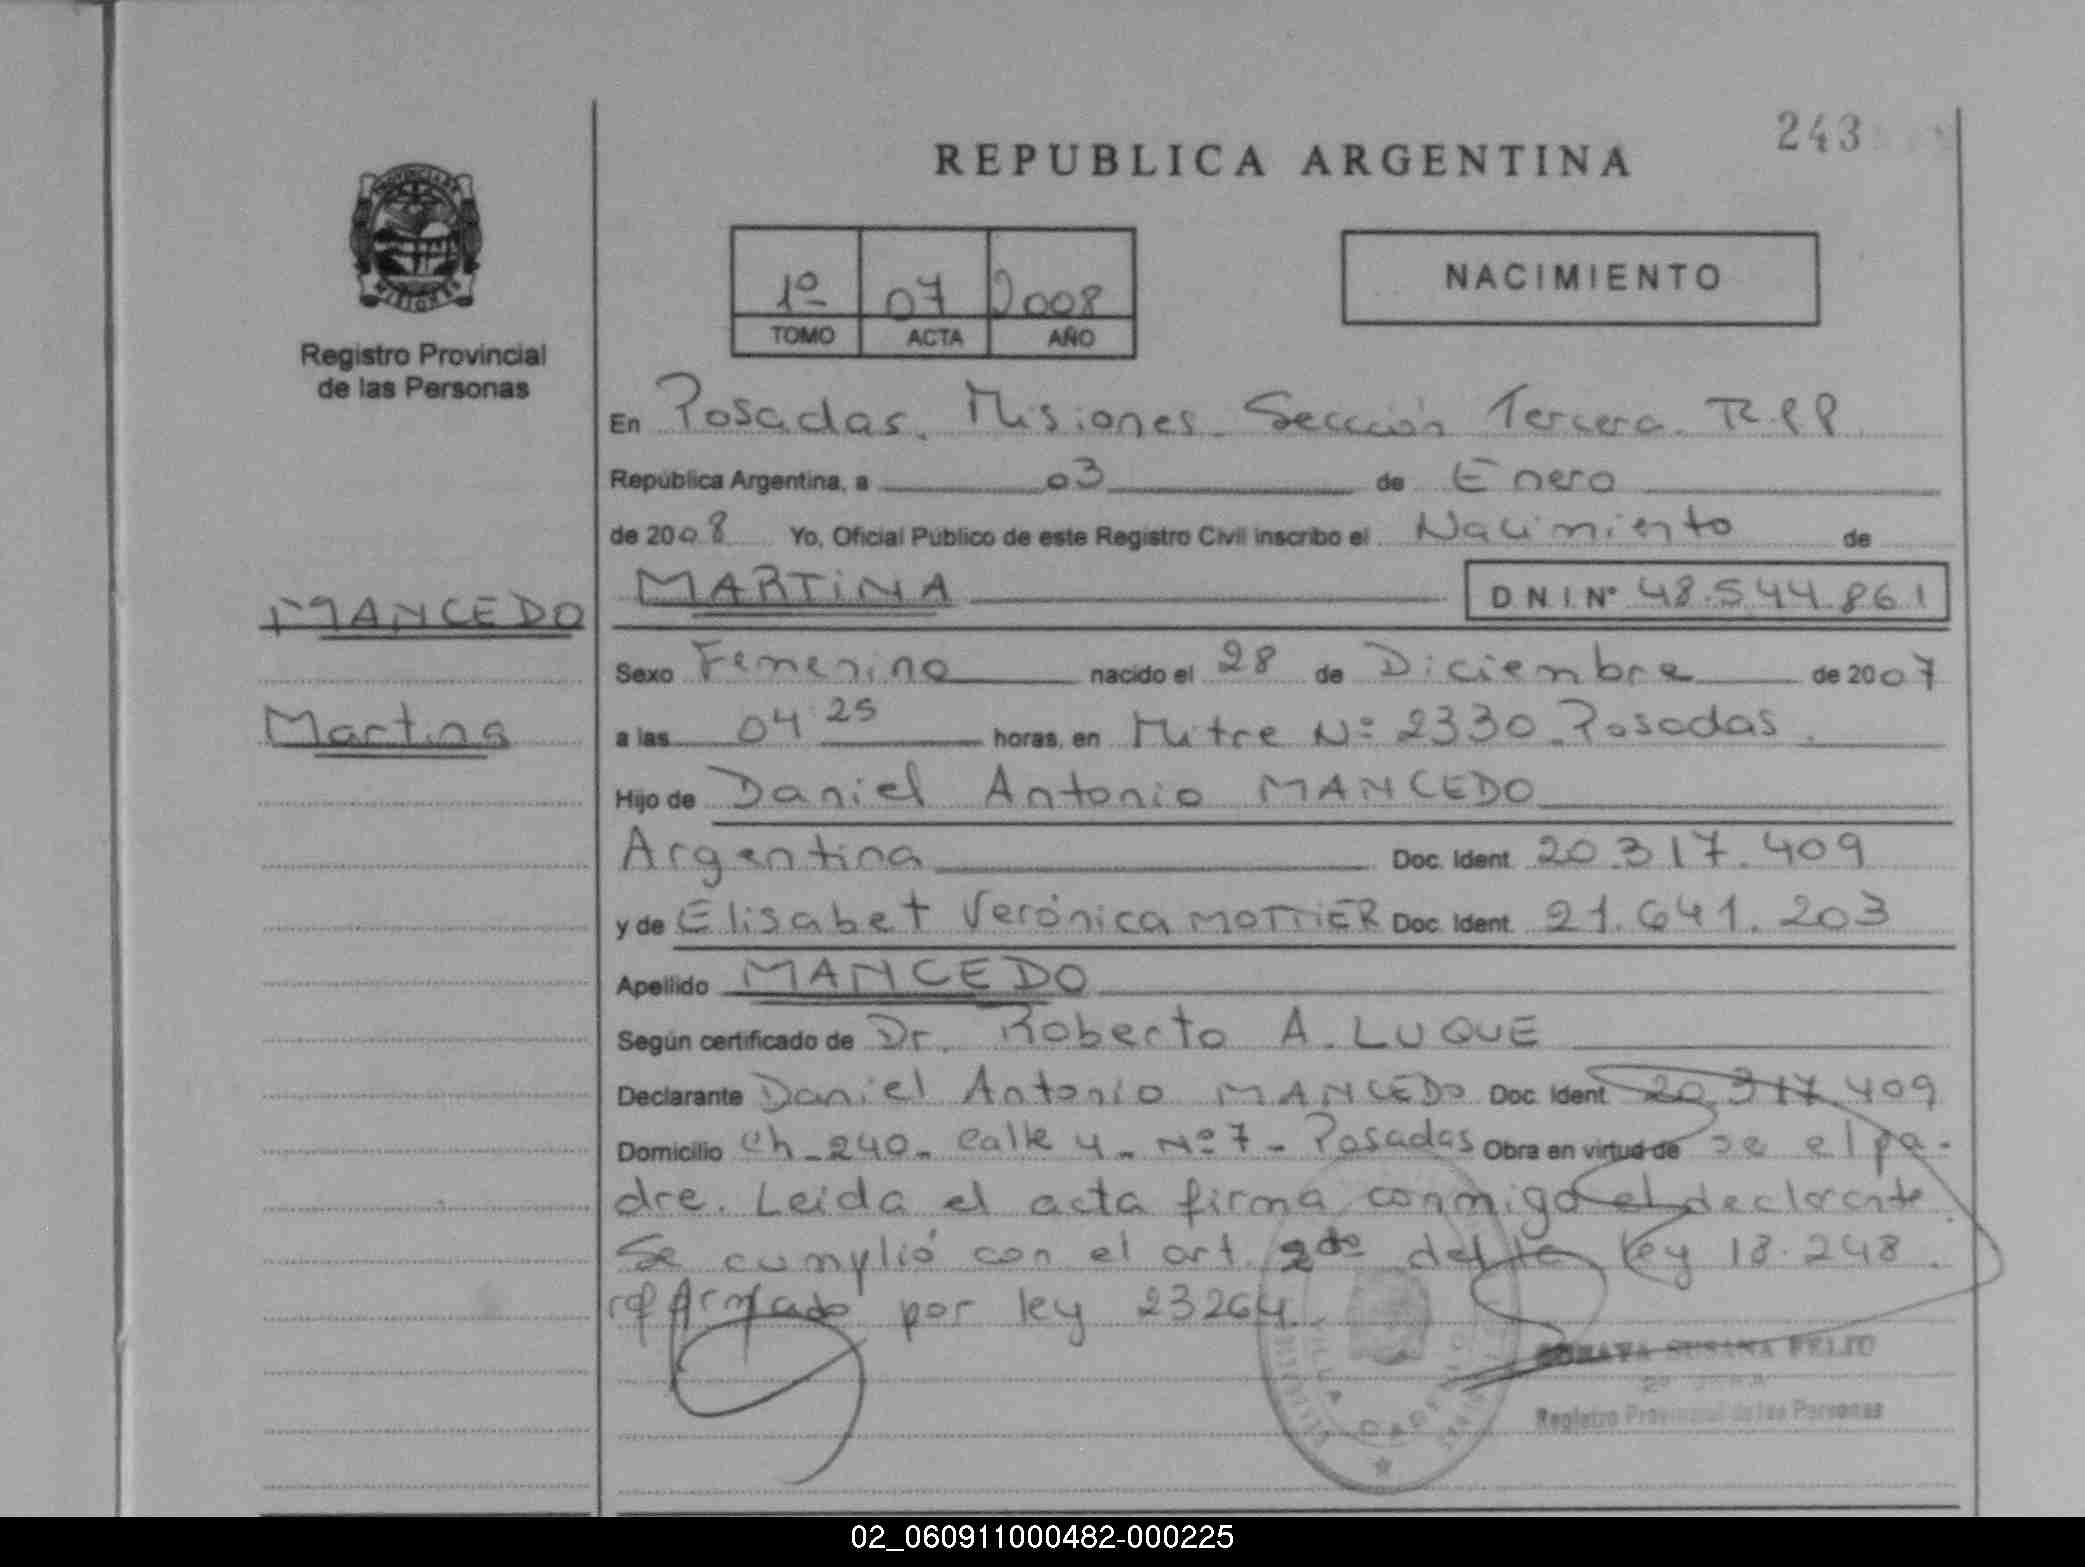 243
REPUBLICA ARGENTINA
PROVINCIA DE
MISIONES
Registro Provincial
de las Personas
1º 07 2008
TOMO ACTA AÑO
NACIMIENTO
En Posadas. Misiones. Sección Tercera. R.P.P.
República Argentina, a 03 de Enero
de 2008 Yo, Oficial Público de este Registro Civil inscribo el Nacimiento de
MANCEDO
MARTINA D N I. Nº 48.544.861
Sexo Femenino nacido el 28 de Diciembre de 2007
Martina
a las 04:25 horas, en Mitre Nº 2330. Posadas.
Hijo de Daniel Antonio MANCEDO
Argentina Doc. Ident. 20.317.409
y de Elisabet Verónica MOTTIER Doc. Ident. 21.641.203
Apellido MANCEDO
Según certificado de Dr. Roberto A. LUQUE
Declarante Daniel Antonio MANCEDO Doc. Ident. 20.317.409
Domicilio Ch. 240. Calle 4. Nº 7 - Posadas Obra en virtud de se el pa-
dre. Leida el acta firma conmigo el declarante.
Se cumplió con el art. 2do de la ley 18.248.
reformado por ley 23264.
SUSANA FELIO
Registro Provincial de las Personas
02_060911000482-000225